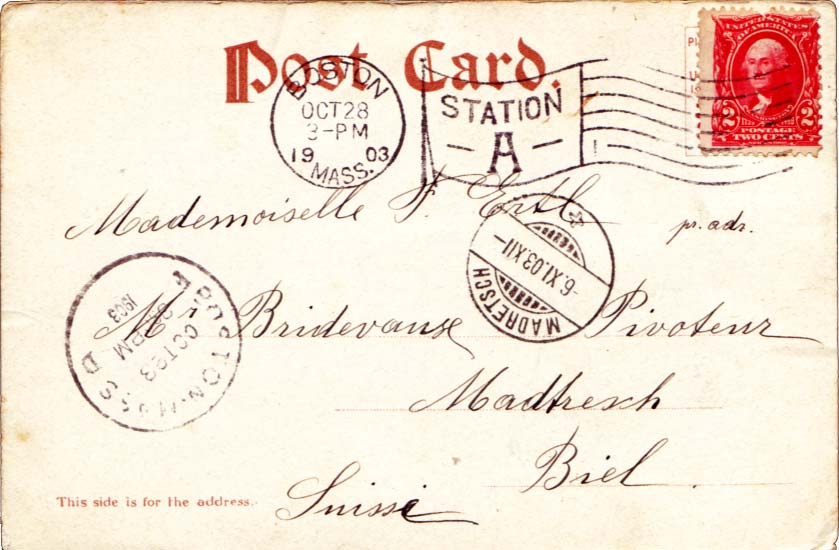 Post Card.
BOSTON
OCT 28
3-PM
19 03
MASS.
STATION
A
UNITED STATES
OF AMERICA
2 2
POSTAGE
TWO CENTS
Mademoiselle F. Ertl
pr. adr.
MADRETSCH
-6.XI.03.XII-
Mr Bridevaux Pivoteur
BOSTON. MASS
OCT 28
PM
1903
D
Madtresch
Biel.
Suisse
This side is for the address.